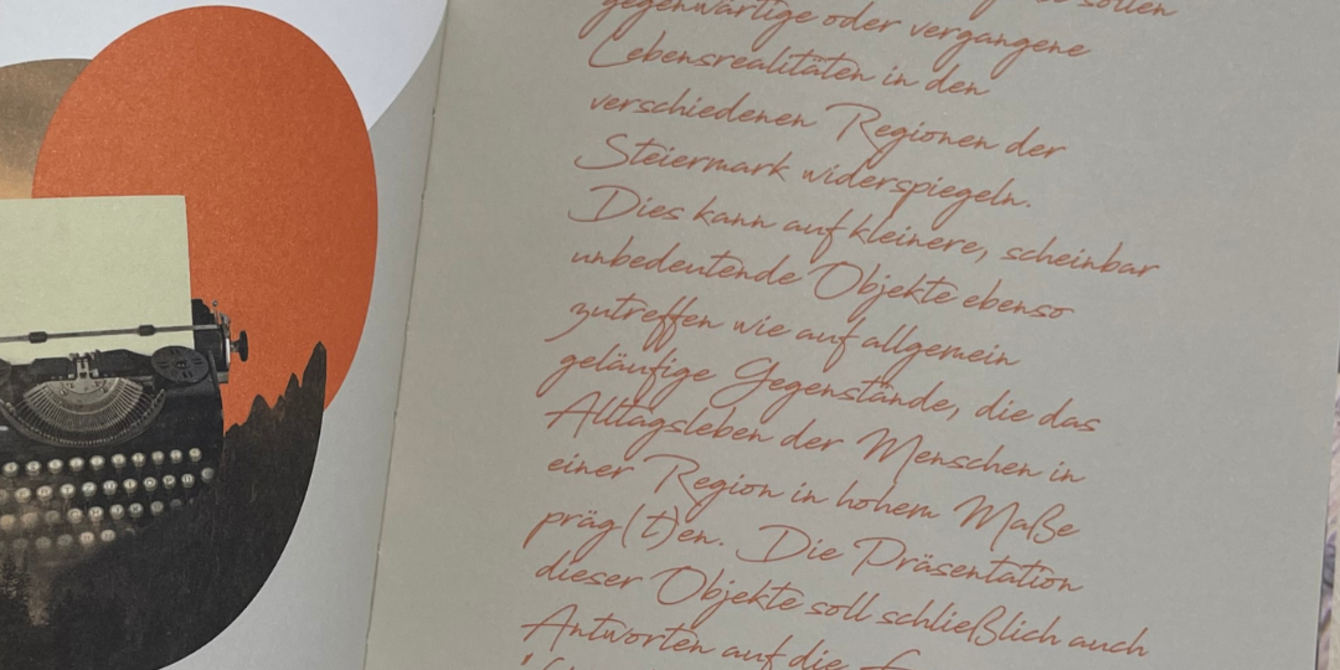 sollen
gegenwärtige oder vergangene
Lebensrealitäten in den
verschiedenen Regionen der
Steiermark widerspiegeln.
Dies kann auf kleinere, scheinbar
unbedeutende Objekte ebenso
zutreffen wie auf allgemein
geläufige Gegenstände, die das
Alltagsleben der Menschen in
einer Region in hohem Maße
präg(t)en. Die Präsentation
dieser Objekte soll schließlich auch
Antworten auf die